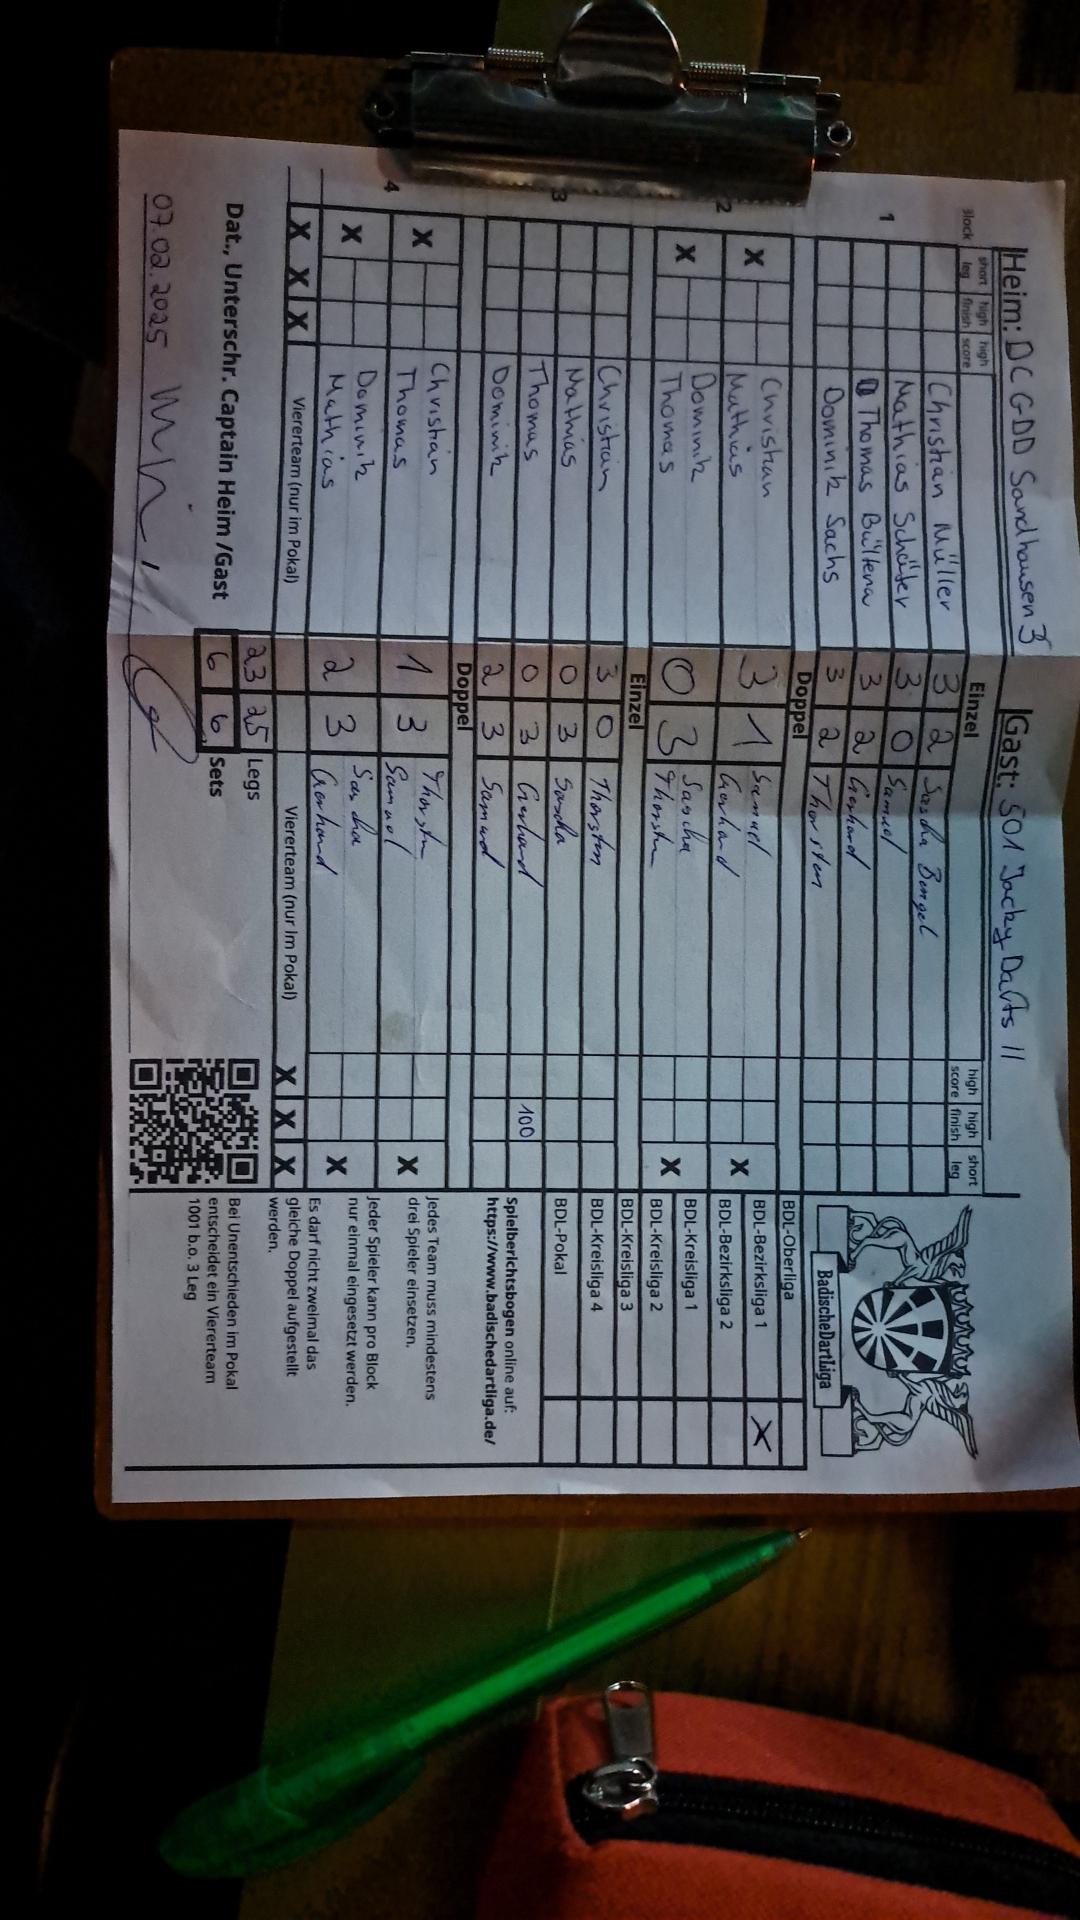 Heim: DC GDD Sandhausen 3 Gast: 501 Jacky Darts II
Block short leg high finish high score Einzel high score high finish short leg
1 Christian Müller 3 2 Sascha
Mathias Schäfer 3 0 Samuel
Thomas Bültena 3 2 Gerhard
Dominik Sachs 3 2 Thorsten
Doppel
2 X Christian 3 1 Samuel X
Mathias Gerhard
X Dominik 0 3 Sascha X
Thomas Thorsten
Einzel
3 Christian 3 0 Thorsten
Mathias 0 3 Sascha
Thomas 0 3 Gerhard 100
Dominik 2 3 Samuel
Doppel
4 X Christian 1 3 Thorsten X
Thomas Samuel
X Dominik 2 3 Sascha X
Mathias Gerhard
X X X Viererteam (nur im Pokal) Viererteam (nur im Pokal) X X X
23 25 Legs
Dat., Unterschr. Captain Heim /Gast 6 6 Sets
07.02.2025
BadischeDartLiga
BDL-Oberliga
BDL-Bezirksliga 1 X
BDL-Bezirksliga 2
BDL-Kreisliga 1
BDL-Kreisliga 2
BDL-Kreisliga 3
BDL-Kreisliga 4
BDL-Pokal
Spielberichtsbogen online auf:
https://www.badischedartliga.de/
Jedes Team muss mindestens
drei Spieler einsetzen.
Jeder Spieler kann pro Block
nur einmal eingesetzt werden.
Es darf nicht zweimal das
gleiche Doppel aufgestellt
werden.
Bei Unentschieden im Pokal
entscheidet ein Viererteam
1001 b.o. 3 Leg